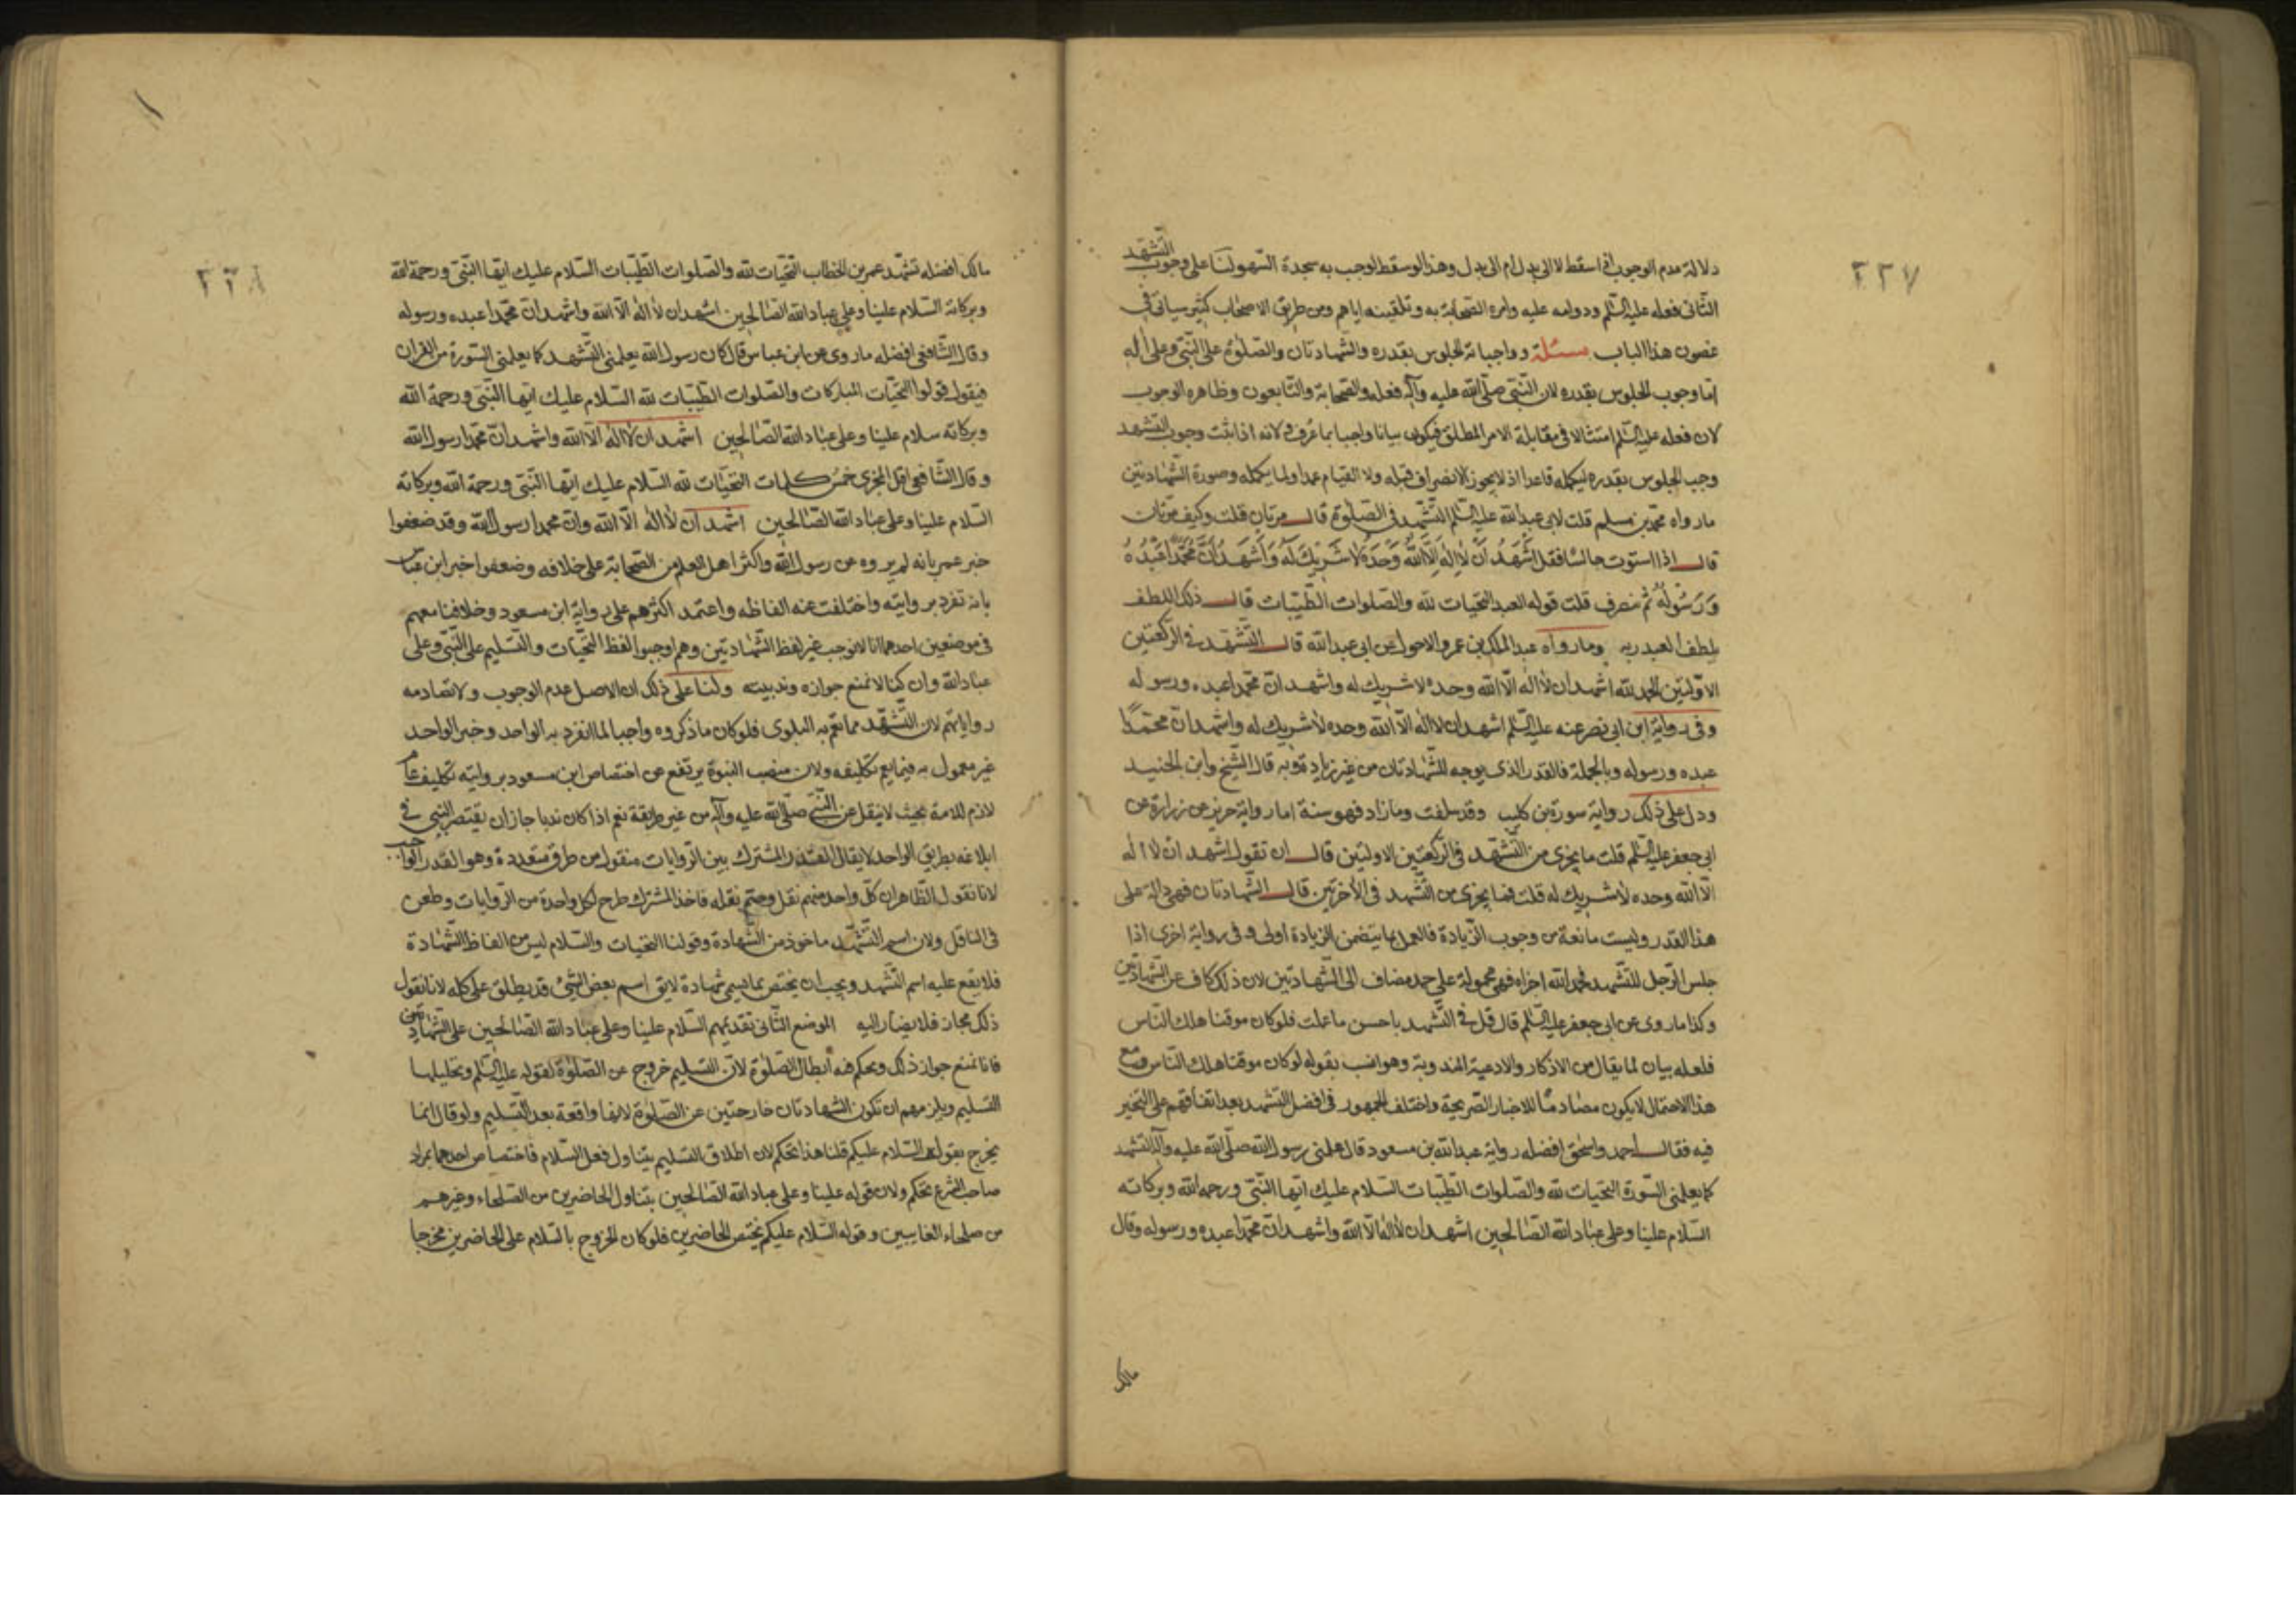 ٢٢٧
دلالة عدم الوجوب اذا سقط لا الى بدل ام الى بدل وهذا لو سقط لوجب به سجدة السهو لنا على وجوب التشهد
الثانى فعله عليه السلم ودوامه عليه وامره الصحابة به وتلقينه اياهم ومن طريق الاصحاب كثير سياتى فى
غصون هذا الباب مسئلة وواجباته الجلوس بقدره والشهادتان والصلوة على النبى وعلى اله
اما وجوب الجلوس بقدره لان النبى صلى الله عليه وآله فعله والصحابة والتابعون وظاهره الوجوب
لان فعله عليه السلم امتثالا فى مقابلة الامر المطلق فيكون بيانا واجبا بما عرف ولانه اذا ثبت وجوب التشهد
وجب الجلوس بقدره ليكمله قاعدا اذ لا يجوز الانصراف قبله ولا القيام عمدا ولما يكمله وصورة الشهادتين
ما رواه محمد بن مسلم قلت لابى عبد الله عليه السلم التشهد فى الصلوة قال مرتان قلت وكيف مرتان
قال اذا استوت جالسا فقل اَشْهَدُ اَنْ لا اِلهَ اِلَّا اللهُ وَحْدَهُ لا شَرِيكَ لَهُ وَاَشْهَدُ اَنَّ مُحَمَّدًا عَبْدُهُ
وَرَسُولُهُ ثم تنصرف قلت قوله العبد التحيات لله والصلوات الطيبات قال ذلك اللطف
يلطف العبد ربه وما رواه عبد الملك بن عمرو الاحول عن ابى عبد الله قال التشهد فى الركعتين
الاولتين الحمد لله اشهد ان لا اله الا الله وحده لا شريك له واشهد ان محمدا عبده ورسوله
وفى رواية ابن ابى نصر عنه عليه السلم اشهد ان لا اله الا الله وحده لا شريك له واشهد ان محمدا
عبده ورسوله وبالجملة فالقدر الذى يوجبه الشهادتان من غير زيادة وبه قال الشيخ وابن الجنيد
ودل على ذلك رواية سورة بن كليب وقد سلفت وما زاد فهو سنة اما رواية حريز عن زرارة عن
ابى جعفر عليه السلم قلت ما يجزى من التشهد فى الركعتين الاولتين قال ان تقول اشهد ان لا اله
الا الله وحده لا شريك له قلت فما يجزى من التشهد فى الاخرتين قال الشهادتان فهى دالة على
هذا القدر وليست مانعة من وجوب الزيادة فالعمل بما يتضمن الزيادة اولى وفى رواية اخرى اذا
جلس الرجل للتشهد فحمد الله اجزاه فهى محمولة على حمد مضاف الى الشهادتين لان ذلك كاف عن الشهادتين
وكذا ما روى عن ابى جعفر عليه السلم قال قل فى التشهد باحسن ما علمت فلو كان موقتا هلك الناس
فلعله بيان لما يقال من الاذكار والادعية المندوبة وهو انسب بقوله لو كان موقتا هلك الناس ومع
هذا الاحتمال لا يكون مصادما للاخبار الصريحة واختلف الجمهور فى افضل التشهد بعد اتفاقهم على التخير
فيه فقال احمد واسحق افضله رواية عبد الله بن مسعود قال علمنى رسول الله صلى الله عليه وآله التشهد
كما يعلمنى السورة التحيات لله والصلوات الطيبات السلام عليك ايها النبى ورحمه الله وبركاته
السلام علينا وعلى عباد الله الصالحين اشهد ان لا اله الا الله واشهد ان محمدا عبده ورسوله وقال
مالك
٢٢٨
مالك افضله تشهد عمر بن الخطاب التحيات لله والصلوات الطيبات السلام عليك ايها النبى ورحمة الله
وبركاته السلام علينا وعلى عباد الله الصالحين اشهد ان لا اله الا الله واشهد ان محمدا عبده ورسوله
وقال الشافعى افضله ما روى عن ابن عباس قال كان رسول الله يعلمنى التشهد كما يعلمنى السورة من القران
فيقول قولوا التحيات المباركات والصلوات الطيبات لله السلام عليك ايها النبى ورحمة الله
وبركاته سلام علينا وعلى عباد الله الصالحين اشهد ان لا اله الا الله واشهد ان محمدا رسول الله
وقال الشافعى اقل المجزى خمس كلمات التحيات لله السلام عليك ايها النبى ورحمة الله وبركاته
السلام علينا وعلى عباد الله الصالحين اشهد ان لا اله الا الله وان محمدا رسول الله وقد ضعفوا
خبر عمر بانه لم يروه عن رسول الله واكثر اهل العلم من الصحابة على خلافه وضعفوا خبر ابن عباس
بانه تفرد بروايته واختلفت عنه الفاظه واعتمد اكثرهم على رواية ابن مسعود وخلافنا معهم
فى موضعين احدهما انا لا نوجب غير لفظ الشهادتين وهم اوجبوا لفظ التحيات والتسليم على النبى وعلى
عباد الله وان كنا لا نمنع جوازه وندبيته ولنا على ذلك ان الاصل عدم الوجوب ولا تصادمه
رواياتهم لان التشهد مما تعم به البلوى فلو كان ما ذكروه واجبا لما انفرد به الواحد وخبر الواحد
غير معمول به فيما يعم تكليفه ولان منصب النبوة يرتفع عن اختصاص ابن مسعود بروايته تكليف عام
لازم للامة بحيث لا ينقل عن النبى صلى الله عليه وآله من غير طريقة نعم اذا كان ندبا جاز ان يقتصر النبى فى
ابلاغه بطريق الواحد لا يقال القدر المشترك بين الروايات منقول من طرق متعددة وهو القدر الواجب
لانا نقول الظاهر ان كل واحد منهم نقل وحتم نقله فاخذ المشترك طرح لكل واحدة من الروايات وطعن
فى الناقل ولان اسم التشهد ماخوذ من الشهادة وقولنا التحيات والسلام ليس من الفاظ الشهادة
فلا يقع عليه اسم التشهد ويجب ان يختص بما يسمى شهادة لا يق اسم بعض الشىء قد يطلق على كله لانا نقول
ذلك مجاز فلا يصار اليه الموضع الثانى تقديمهم السلام علينا وعلى عباد الله الصالحين على الشهادتين
فانا نمنع جواز ذلك ونحكم فيه ابطال الصلوة لان التسليم خروج عن الصلوة لقوله عليه السلم وتحليلها
التسليم ويلزمهم ان تكون الشهادتان خارجتين عن الصلوة لانها واقعة بعد التسليم ولو قال انما
يخرج بقوله السلام عليكم قلنا هذا تحكم لان اطلاق التسليم يتناول فعل السلام فاختصاص احدهما بمراد
صاحب الشرع تحكم ولان قوله علينا وعلى عباد الله الصالحين يتناول الحاضرين من الصلحاء وغيرهم
من صلحاء الغايبين وقوله السلام عليكم يختص الحاضرين فلو كان الخروج بالسلام على الحاضرين مخرجا